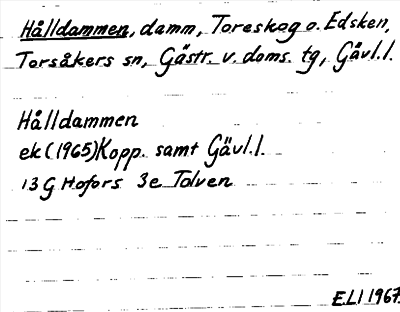 Hålldammen, damm, Toreskog o. Edsken,
Torsåkers sn, Gästr. v. doms. tg, Gävl.l.
Hålldammen
ek (1965) Kopp. samt Gävl.l.
13 G Hofors 3e Tolven
E.LI 1967.